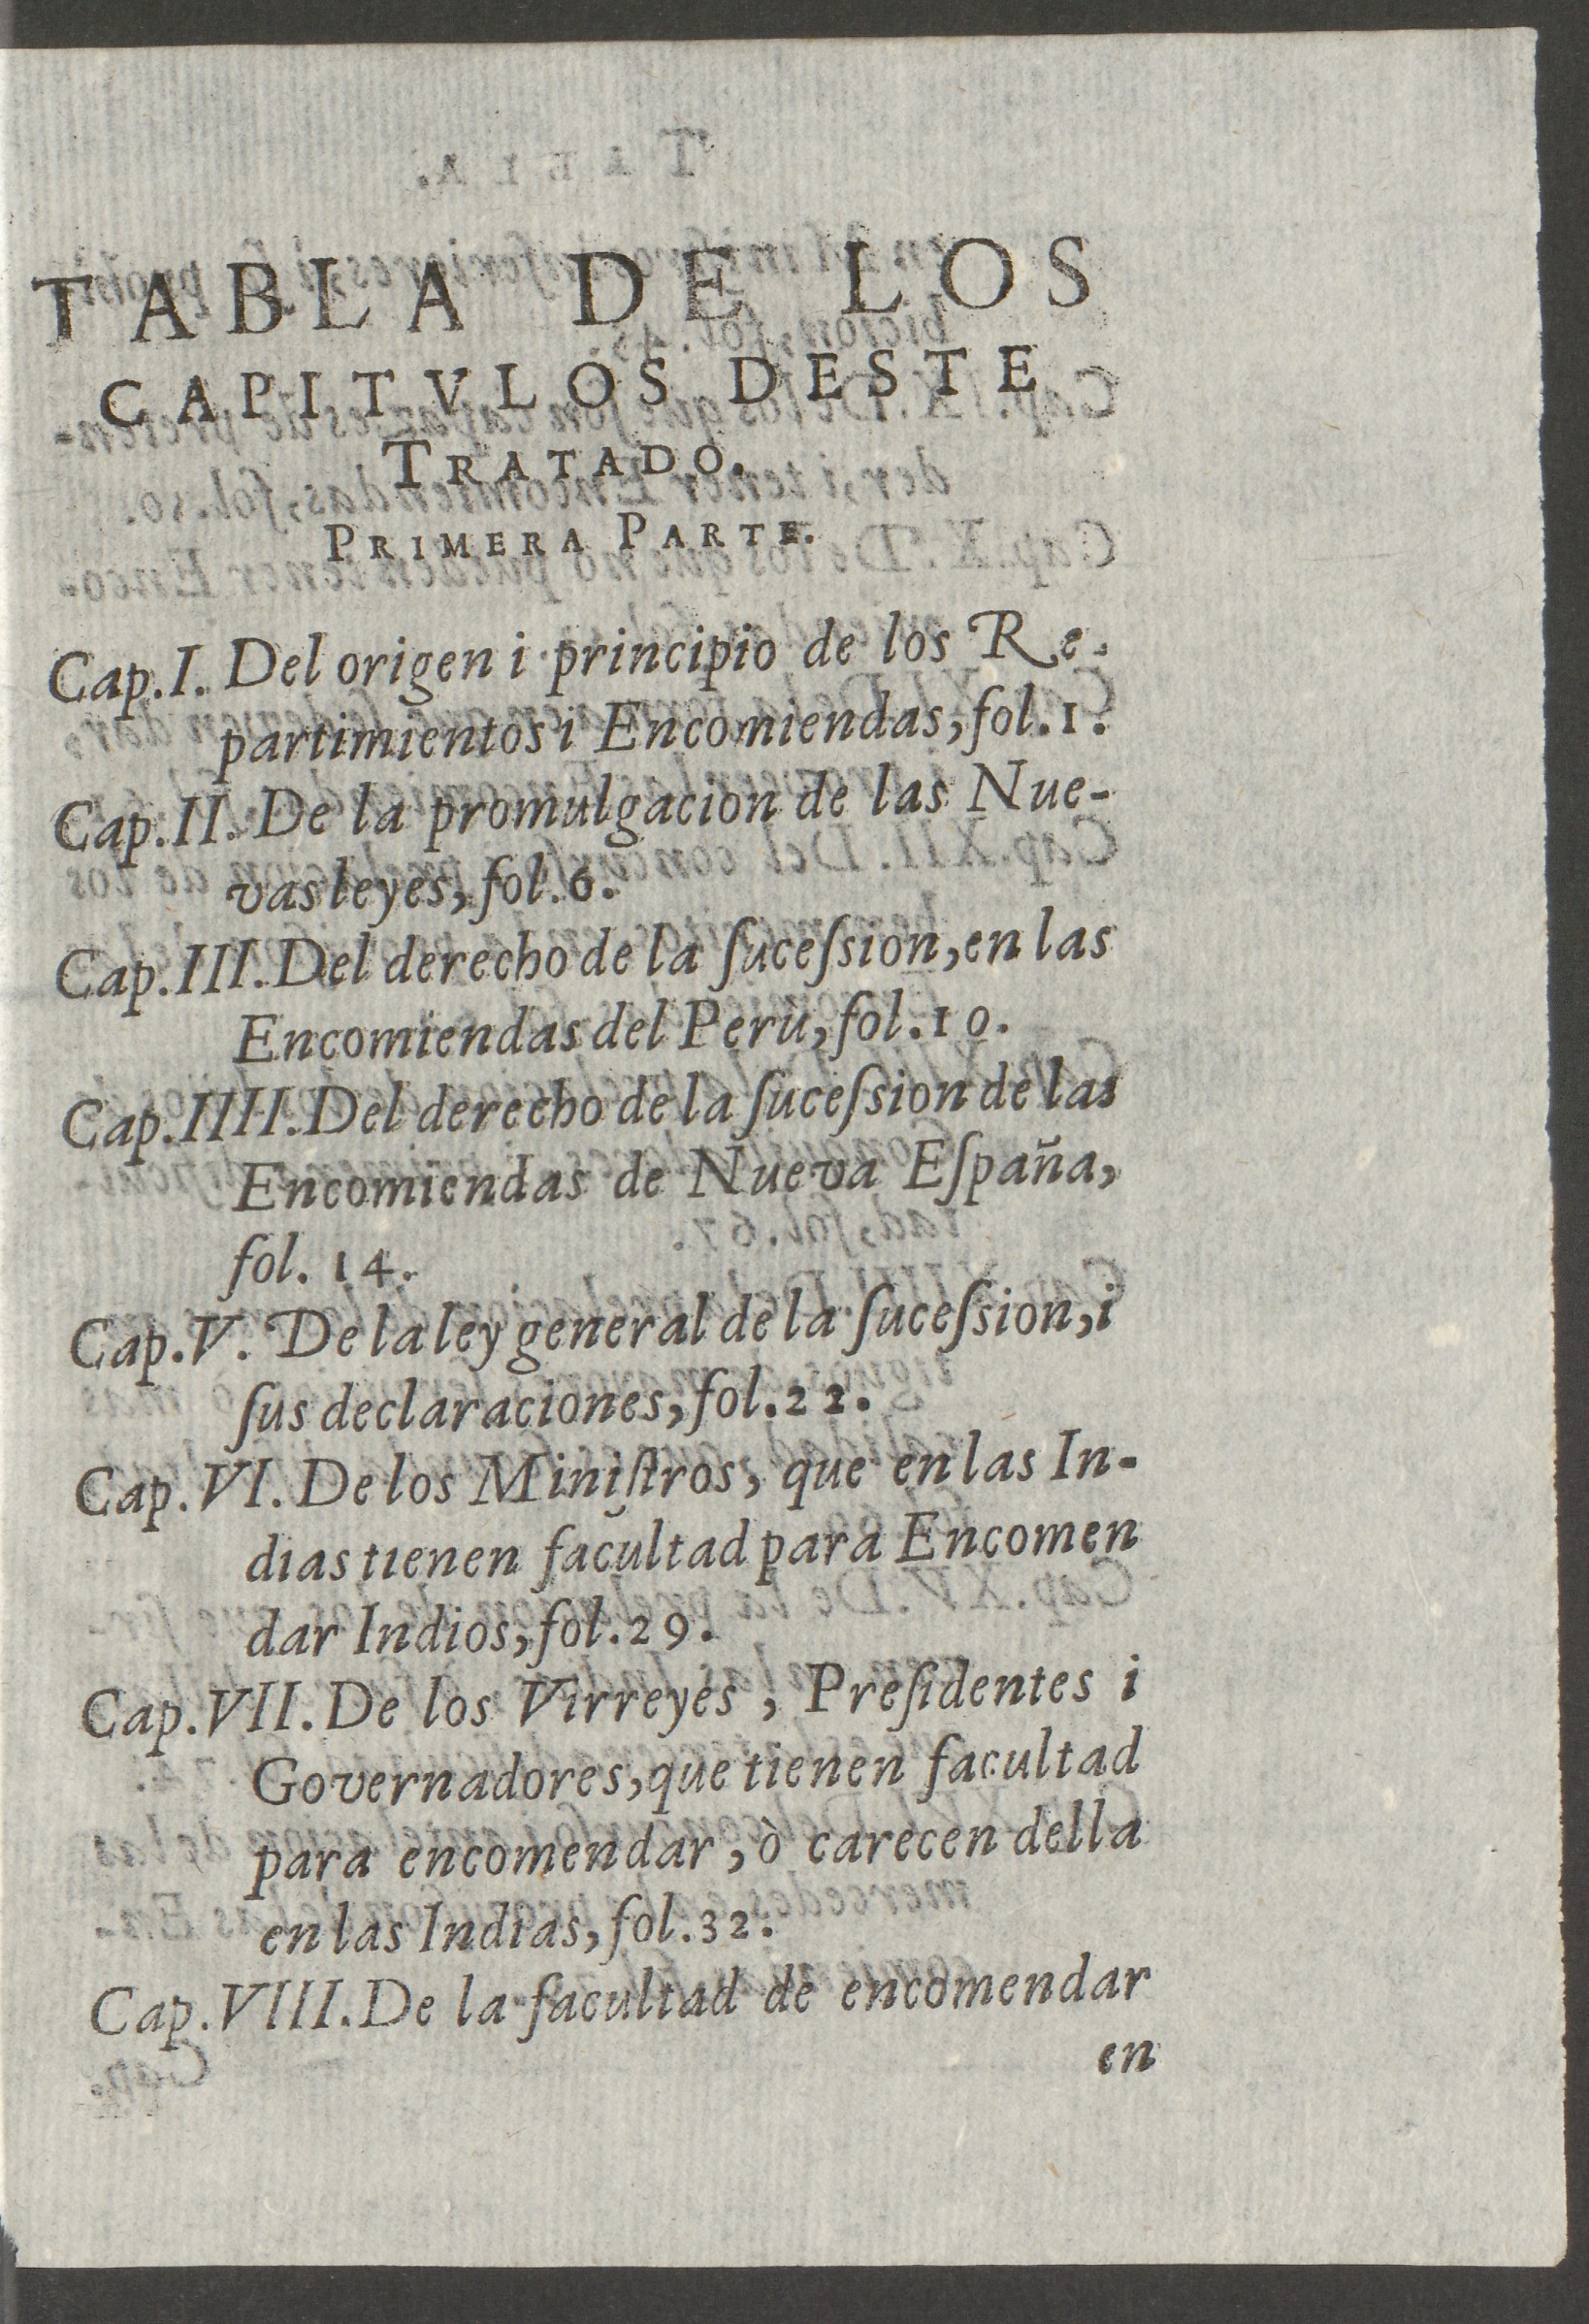 TABLA DE LOS
CAPITVLOS DESTE
TRATADO.
PRIMERA PARTE.
Cap.I. Del origen i principio de los Re-
partimientos i Encomiendas, fol.1.
Cap.II. De la promulgacion de las Nue-
vas leyes, fol.6.
Cap.III. Del derecho de la ſuceſsion, en las
Encomiendas del Perù, fol.10.
Cap.IIII. Del derecho de la ſuceſsion de las
Encomiendas de Nueva Eſpaña,
fol. 14.
Cap.V. De la ley general de la ſuceſsion, i
ſus declaraciones, fol.22.
Cap.VI. De los Miniſtros, que en las In-
dias tienen facultad para Encomen
dar Indios, fol.29.
Cap.VII. De los Virreyes, Preſidentes i
Governadores, que tienen facultad
para encomendar, ò carecen della
en las Indias, fol.32.
Cap.VIII. De la facultad de encomendar
en